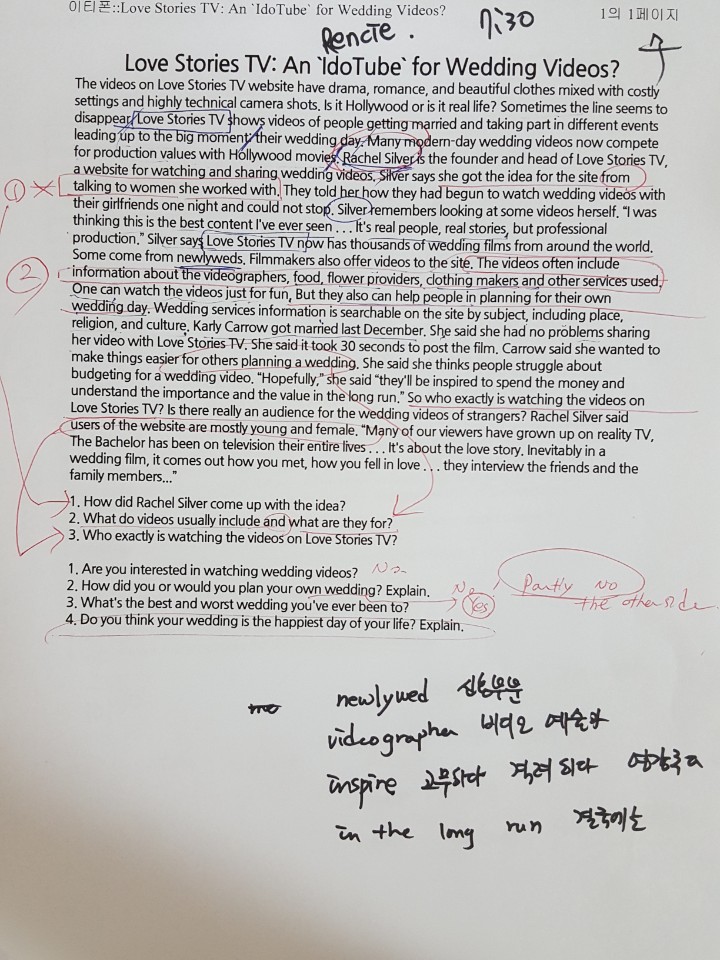 이티폰::Love Stories TV: An `IdoTube` for Wedding Videos?
1의 1페이지
7:30
Love Stories TV: An `IdoTube` for Wedding Videos?
The videos on Love Stories TV website have drama, romance, and beautiful clothes mixed with costly
settings and highly technical camera shots. Is it Hollywood or is it real life? Sometimes the line seems to
disappear. Love Stories TV shows videos of people getting married and taking part in different events
leading up to the big moment: their wedding day. Many modern-day wedding videos now compete
for production values with Hollywood movies. Rachel Silver is the founder and head of Love Stories TV,
a website for watching and sharing wedding videos. Silver says she got the idea for the site from
① talking to women she worked with. They told her how they had begun to watch wedding videos with
their girlfriends one night and could not stop. Silver remembers looking at some videos herself. “I was
thinking this is the best content I've ever seen . . . It's real people, real stories, but professional
production.” Silver says Love Stories TV now has thousands of wedding films from around the world.
Some come from newlyweds. Filmmakers also offer videos to the site. The videos often include
② information about the videographers, food, flower providers, clothing makers and other services used.
One can watch the videos just for fun, But they also can help people in planning for their own
wedding day. Wedding services information is searchable on the site by subject, including place,
religion, and culture. Karly Carrow got married last December. She said she had no problems sharing
her video with Love Stories TV. She said it took 30 seconds to post the film. Carrow said she wanted to
make things easier for others planning a wedding. She said she thinks people struggle about
budgeting for a wedding video. “Hopefully,” she said “they'll be inspired to spend the money and
understand the importance and the value in the long run.” So who exactly is watching the videos on
Love Stories TV? Is there really an audience for the wedding videos of strangers? Rachel Silver said
users of the website are mostly young and female. “Many of our viewers have grown up on reality TV,
The Bachelor has been on television their entire lives . . . It's about the love story. Inevitably in a
wedding film, it comes out how you met, how you fell in love . . . they interview the friends and the
family members...”
1. How did Rachel Silver come up with the idea?
2. What do videos usually include and what are they for?
3. Who exactly is watching the videos on Love Stories TV?
1. Are you interested in watching wedding videos? No
2. How did you or would you plan your own wedding? Explain. No
3. What's the best and worst wedding you've ever been to? Yes
4. Do you think your wedding is the happiest day of your life? Explain.
Partly No
the other side
newlywed 신혼부부
videographer 비디오 예술가
inspire 고무하다 격려하다 영감주다
in the long run 결국에는